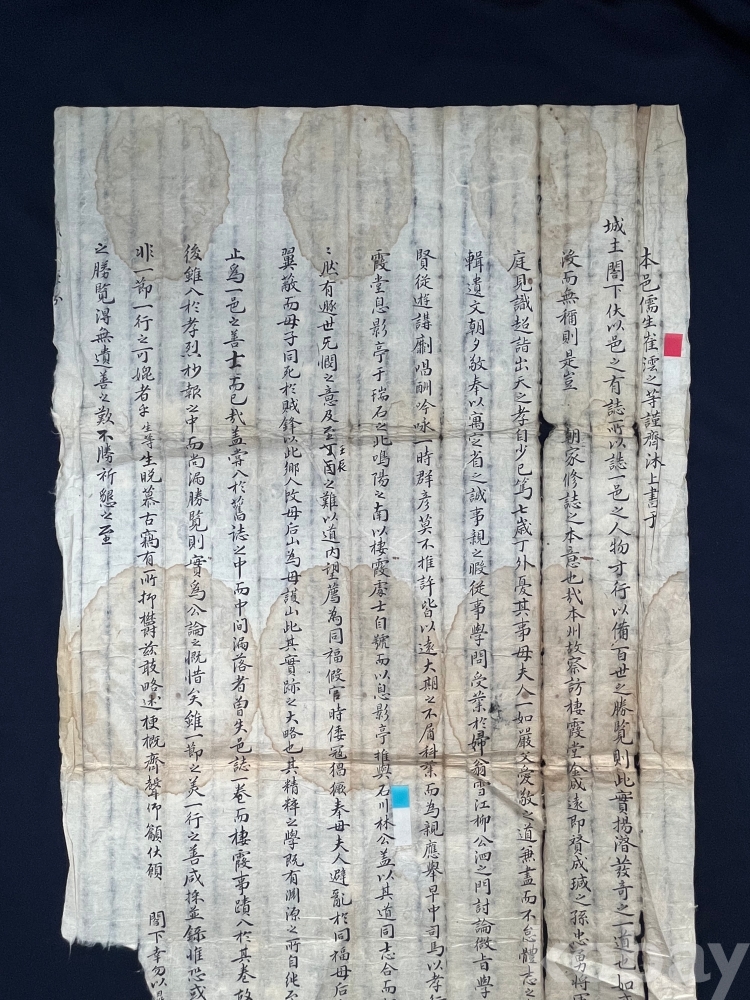 本邑儒生崔澐之等謹齊沐上書于
城主閤下伏以邑之有誌所以誌一邑之人物才行以備百世之勝覽則此實揚潛發奇之一道也如
沒而無稱則是豈 朝家修誌之本意也哉本州故察訪棲霞堂金成遠即贊成瑊之孫忠勇將軍
庭見識超詣出天之孝自少已篤七歲丁外憂其事母夫人一如嚴父愛敬之道兼盡而不怠體志之
輯遺文朝夕敬奉以寓定省之誠事親之暇從事學問受業於婦翁雪江柳公泗之門討論微旨學
賢從遊講劘唱酬吟咏一時群彦莫不推許皆以遠大期之不屑科業而為親應擧早中司馬以孝行
霞堂息影亭于瑞石之北鳴陽之南以棲霞處士自號而以息影亭推與石川林公盖以其道同志合而
然有豚世死憫之意及至丁酉之難以道內望薦為同福假官時倭寇猖獗奉母夫人避亂於同福母后
壬辰
翼蔽而母子同死於賊鋒以此鄉人改母后山為母護山此其實跡之大略也其精粹之學既有淵源之所自
止為一邑之善士而已哉盖嘗入於舊誌之中而中間漏落者曾失邑誌一卷而棲霞事蹟入於其卷故
後雖入於孝烈抄報之中而尚漏勝覽則實為公論之慨惜矣雖一節之美一行之善咸採並錄惟恐或
非一節一行之可媲者乎生等生晩慕古竊有所抑欝玆敢略述梗槪齊聲仰籲伏願 閤下幸勿以
之勝覽得無遺善之歎不勝祈懇之至